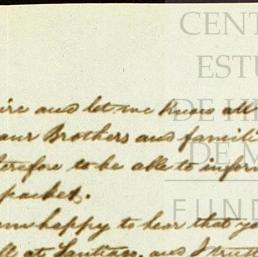 CENT
ESTU
DE HI
DE M
FUND
ire and let me know all
our Brothers and famili
therefore to be able to inform
packet.
am happy to hear that yo
at Santiago, and I trust